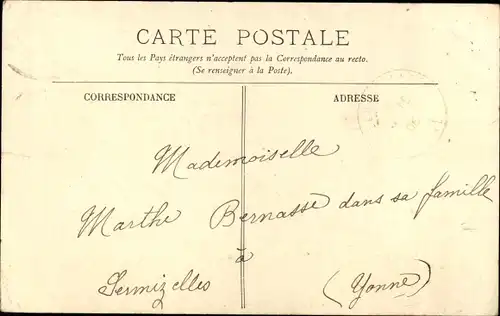 CARTE POSTALE
Tous les Pays étrangers n'acceptent pas la Correspondance au recto.
(Se renseigner à la Poste).
CORRESPONDANCE
ADRESSE
Mademoiselle
Marthe Bernasse dans sa famille
à
Sermizelles (Yonne)